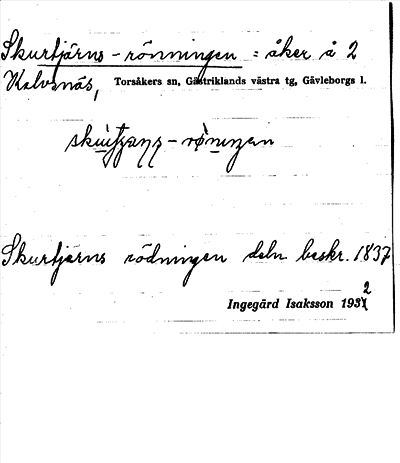 Skurtjärns-rönningen = åker å 2
Kalvsnäs, Torsåkers sn, Gästriklands västra tg, Gävleborgs l.
Skurtjärns rödningen deln beskr. 1837
Ingegärd Isaksson 1932